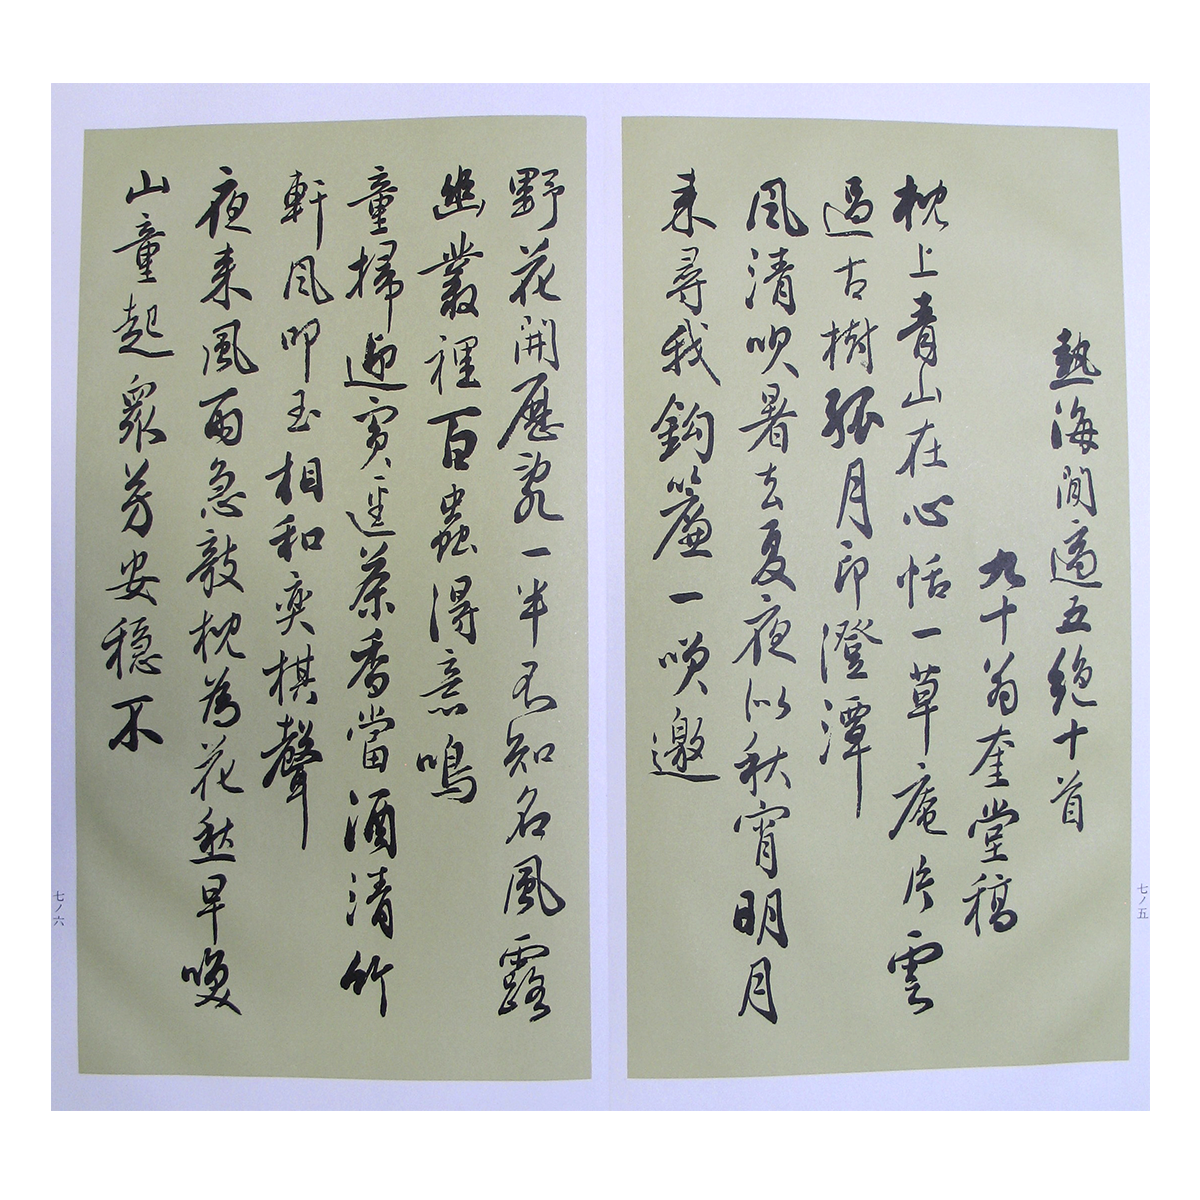 熱海閒適五絶十首
九十翁奎堂稿
枕上青山在心恬一草庵片雲
過古樹孤月印澄潭
風清吹暑去夏夜似秋宵明月
来尋我鈎簾一笑邀
野花開歴亂一半不知名風露
幽叢裡百蟲得意鳴
童掃迎賓逕茶香當酒清竹
軒風叩玉相和奕棋聲
夜来風雨急敲枕為花愁早喚
山童起衆芳安穏不
七ノ五
七ノ六